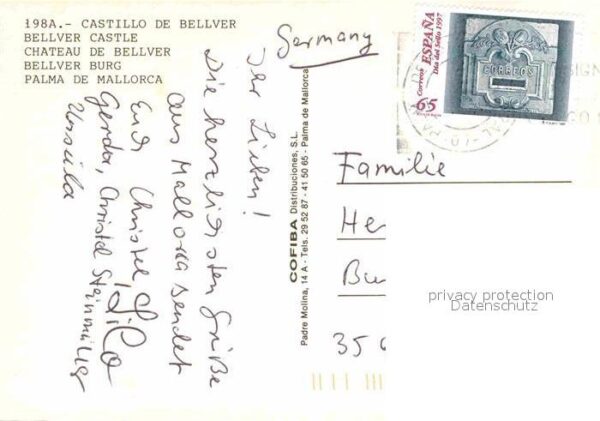 198A.- CASTILLO DE BELLVER
BELLVER CASTLE
CHATEAU DE BELLVER
BELLVER BURG
PALMA DE MALLORCA
Germany
Ihr Lieben!
Die herzlichsten Grüße
aus Mallorca sendet
Euch Christel
Gerda, Christel Steinmüller
Ursula
COFIBA Distribuciones, S.L.
Padre Molina, 14 A - Tels. 29 52 87 - 41 50 65 - Palma de Mallorca
Correos ESPAÑA
Día del Sello 1997
65
CORREOS
Familie
He
Bu
privacy protection
Datenschutz
356